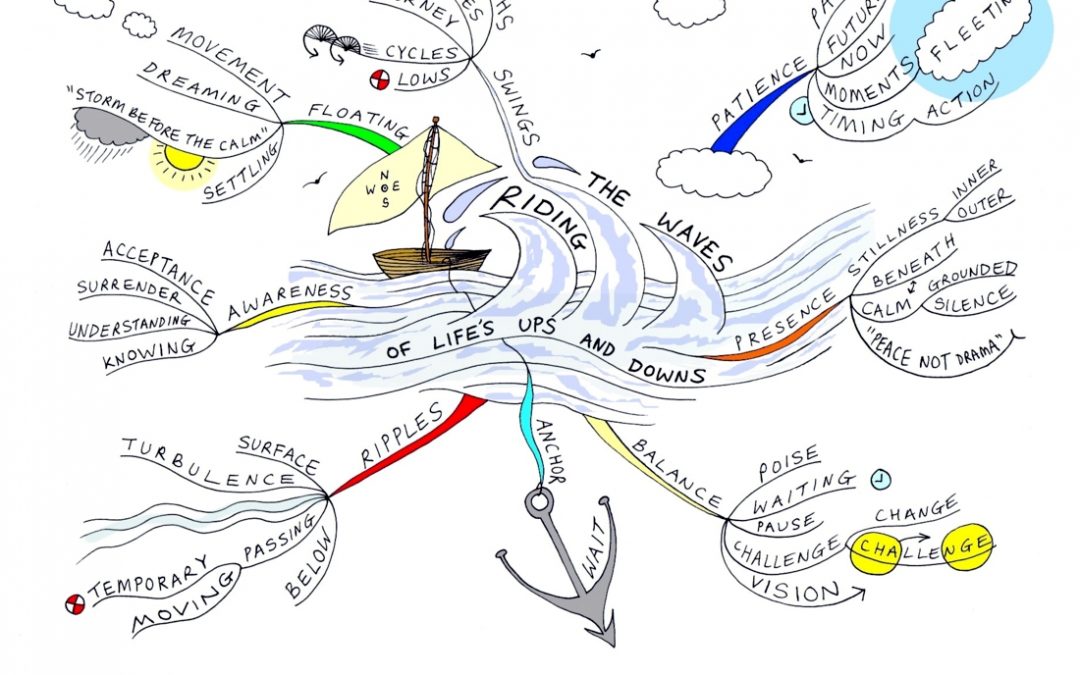 RIDING
THE WAVES
OF LIFE'S UPS AND DOWNS
SWINGS
CYCLES
LOWS
PATIENCE
NOW
MOMENTS
TIMING
ACTION
PRESENCE
STILLNESS
INNER
OUTER
BENEATH
CALM
GROUNDED
SILENCE
"PEACE NOT DRAMA"
BALANCE
POISE
WAITING
PAUSE
CHALLENGE
CHANGE
CHALLENGE
VISION
ANCHOR
WAIT
RIPPLES
SURFACE
TURBULENCE
PASSING
TEMPORARY
MOVING
BELOW
AWARENESS
ACCEPTANCE
SURRENDER
UNDERSTANDING
KNOWING
FLOATING
MOVEMENT
DREAMING
"STORM BEFORE THE CALM"
SETTLING
N
W O E
S